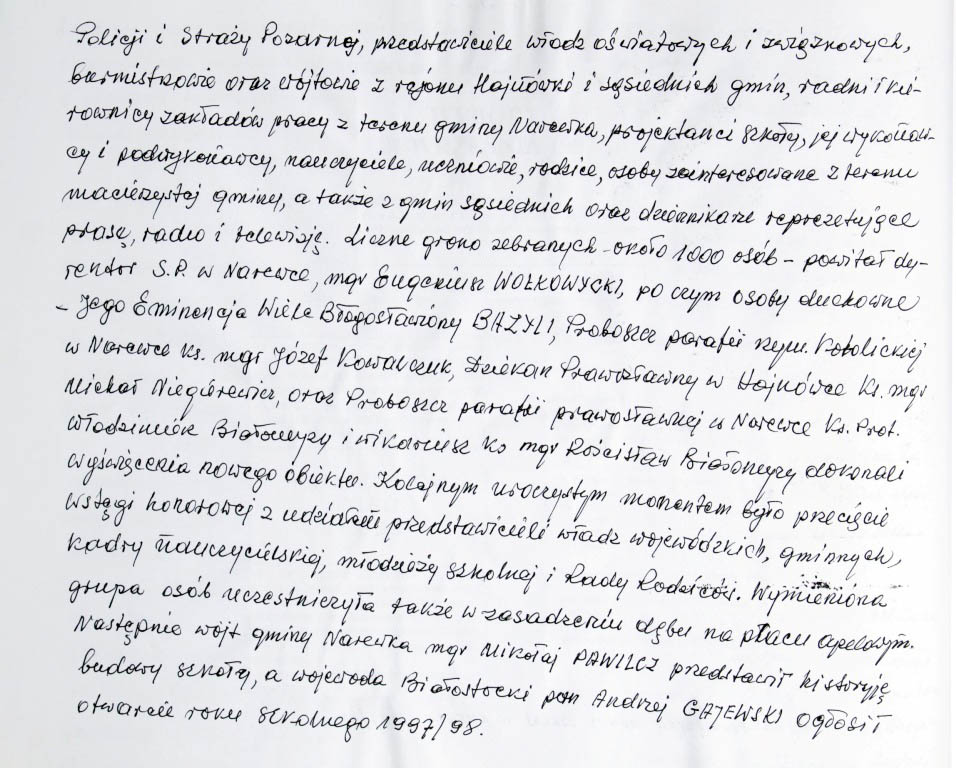 Policji i Straży Pożarnej, przedstawiciele władz oświatowych i związkowych,
burmistrzowie oraz wójtowie z rejonu Hajnówki i sąsiednich gmin, radni i kie-
rownicy zakładów pracy z terenu gminy Narewka, projektanci szkoły, jej wykonaw-
cy i podwykonawcy, nauczyciele, uczniowie, rodzice, osoby zainteresowane z terenu
macierzystej gminy, a także z gmin sąsiednich oraz dziennikarze reprezetujące
prasę, radio i telewizję. Liczne grono zebranych - około 1000 osób - powitał dy-
rektor S.P. w Narewce, mgr Eugeniusz WOŁKOWYCKI, po czym osoby duchowne
- Jego Eminencja Wielce Błogosławiony BAZYLI, Proboszcz parafii rzym. Katolickiej
w Narewce ks. mgr Józef Kowalczuk, Dziekan Prawosławny w Hajnówce Ks. mgr
Michał Niegierewicz, oraz Proboszcz parafii prawosławnej w Narewce Ks. Prot.
Włodzimierz Białomyzy i wikariusz ks mgr Rościsław Białomyzy dokonali
wyświęcenia nowego obiektu. Kolejnym uroczystym momentem było przecięcie
wstęgi honorowej z udziałem przedstawicieli władz wojewódzkich, gminnych,
kadry nauczycielskiej, młodzieży szkolnej i Rady Rodziców. Wymieniona
grupa osób uczestniczyła także w zasadzeniu dębu na placu apelowym.
Następnie wójt gminy Narewka mgr Mikołaj PAWILCZ przedstawił historyję
budowy szkoły, a wojewoda Białostocki pan Andrzej GAJEWSKI ogłosił
otwarcie roku szkolnego 1997/98.